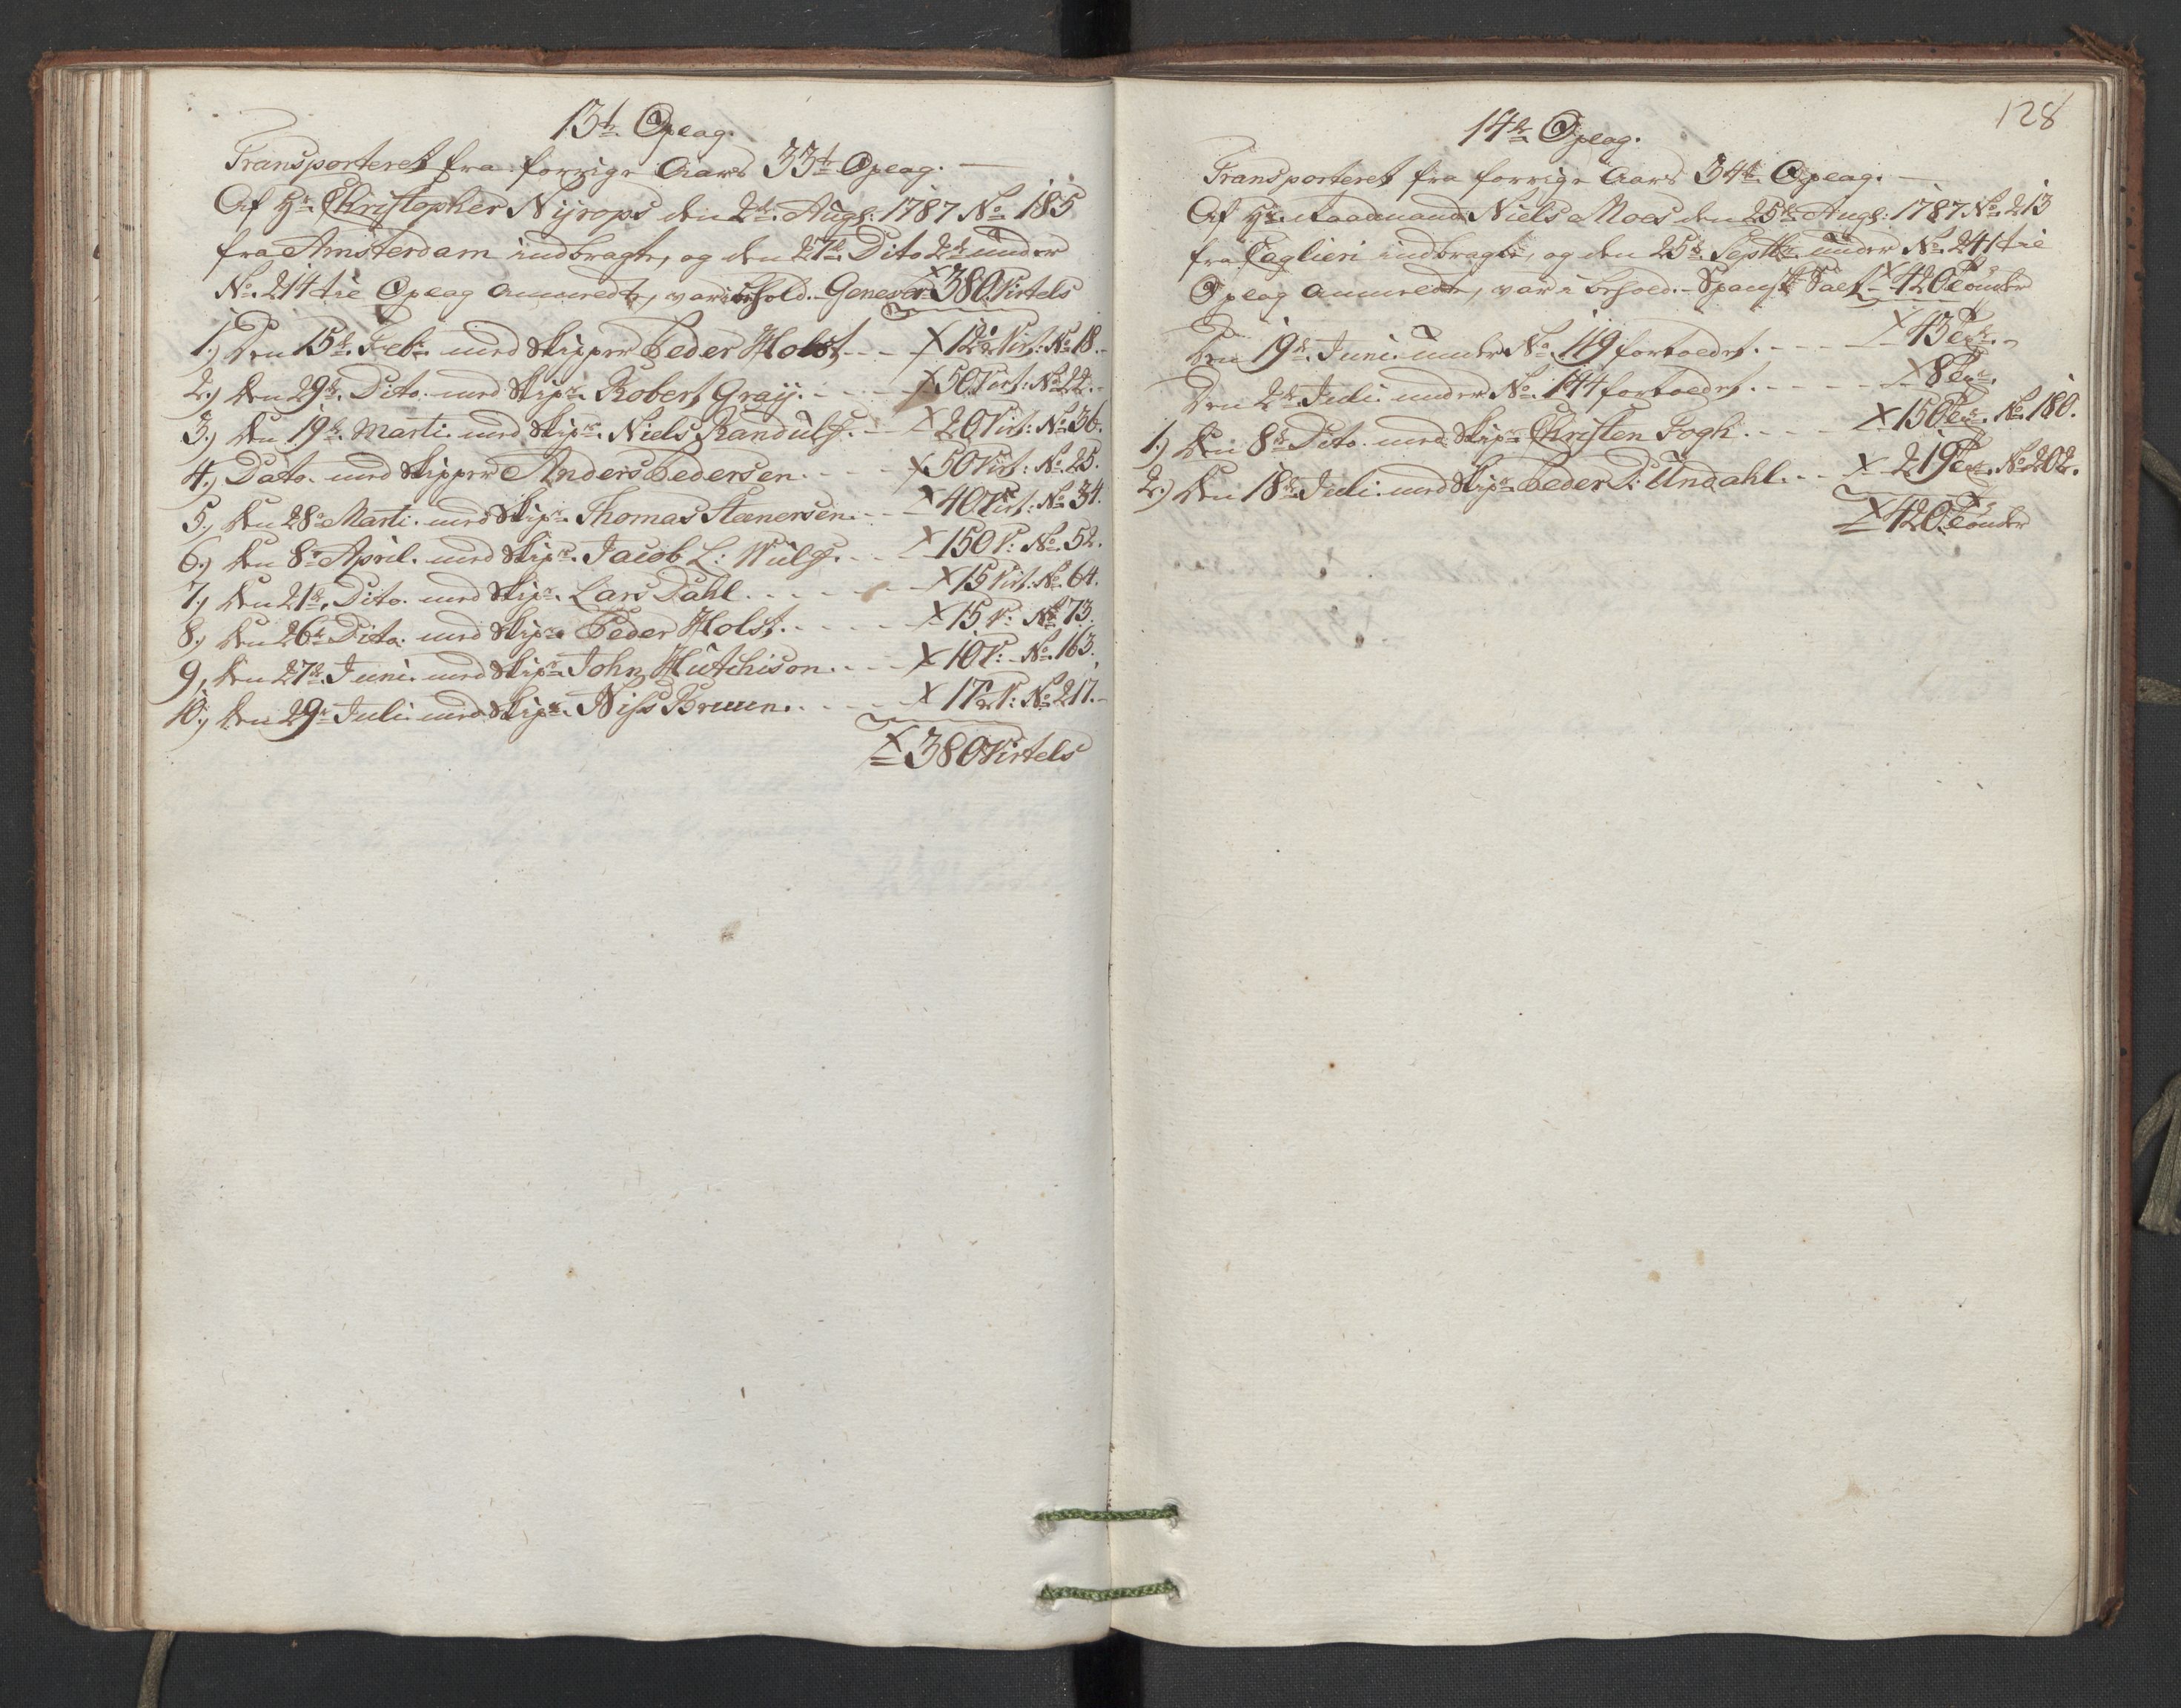 13de Oplag.
Transporteret fra forrige Aars 33te Oplag.
Af Hr. Christopher Nyrops den 2de Augs: 1787 No 185
fra Amsterdam indbragte, og den 27de Dito under
No. 214 til Oplag anmeldte, var i behold. Genever 380 Virtels
1.) Den 15de Feb: med Skipper Peder Holst - - - 12½ Virt: No 18.
2.) den 29de Dito. med Skipr. Robert Gray. - - - 50 Virt: No 22.
3.) den 19de Marti. med Skipr. Niels Randulf. - - 20 Virt: No 36.
4.) Dato. med Skipper Anders Pedersen. - - - 50 Virt: No 25.
5.) den 28e Marti. med Skipr. Thomas Steenersen. - - 40 Virt: No 34.
6.) den 8e April. med Skipr. Jacob L: Wulf. - - 150 V: No. 52.
7.) den 21de Dito. med Skipr. Lars Dahl. - - - - 15 Virt. No. 64.
8.) den 26de Dito. med Skipr. Peder Holst. - - - - 15 V: No 73.
9.) den 27de Juni. med Skipr. John Hutchison. - - - 10 V: No. 163.
10.) den 29de Juli. med Skipr. Niss Bruun. - - - - 17½ V: No 217.
380 Virtels
128
14de Oplag.
Transporteret fra forrige Aars 34de Oplag.
Af Hr. Raadmand Niels Moes den 25de Augs: 1787 No. 213
fra Caglieri indbragte, og den 25de Septbr. under No. 241 til
Oplag anmeldte, var i behold. Spansk Salt - 420 Tønder
Den 19de Juni. under No. 119 fortoldet. - - - - 43 Tr.
Den 2de Juli. under No. 144 fortoldet. - - - - - 8 Tr.
1.) den 8de Dito. med Skipr. Christen Fogh. - - - 150 Tr. No. 180.
2.) den 18de Juli. med Skipr. Peder D: Undahl. - - 219 Tr. No 202.
420 Tønder